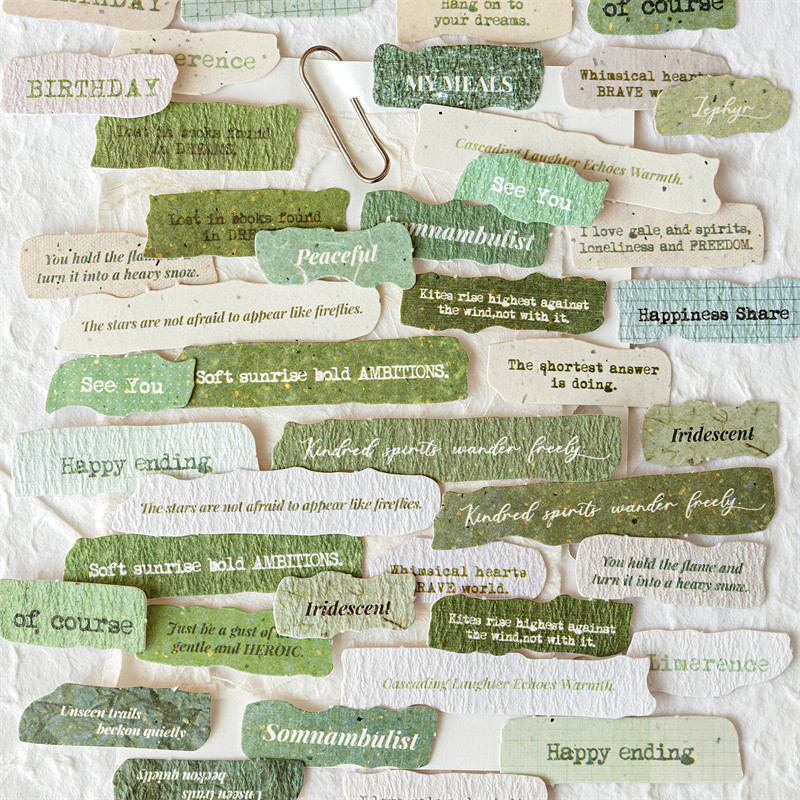 Hang on to
your dreams.
of course
BIRTHDAY
Limerence
BIRTHDAY
MY MEALS
Whimsical hearts
BRAVE
Zephyr
Lost in books found
in DREAMS.
Cascading Laughter Echoes Warmth.
See You
Lost in books found
in
Somnambulist
I love gale and spirits,
loneliness and FREEDOM.
You hold the flame
turn it into a heavy snow.
Peaceful
Kites rise highest against
the wind,not with it.
Happiness Share
The stars are not afraid to appear like fireflies.
See You
Soft sunrise bold AMBITIONS.
The shortest answer
is doing.
Iridescent
Happy ending
Kindred spirits wander freely.
The stars are not afraid to appear like fireflies.
Kindred spirits wander freely.
Soft sunrise bold AMBITIONS.
Whimsical hearts
BRAVE world.
You hold the flame and
turn it into a heavy snow.
of course
Just be a gust of
gentle and HEROIC.
Iridescent
Kites rise highest against
the wind,not with it.
Limerence
Cascading Laughter Echoes Warmth.
Unseen trails
beckon quietly
Somnambulist
Happy ending
Unseen trails
beckon quietly